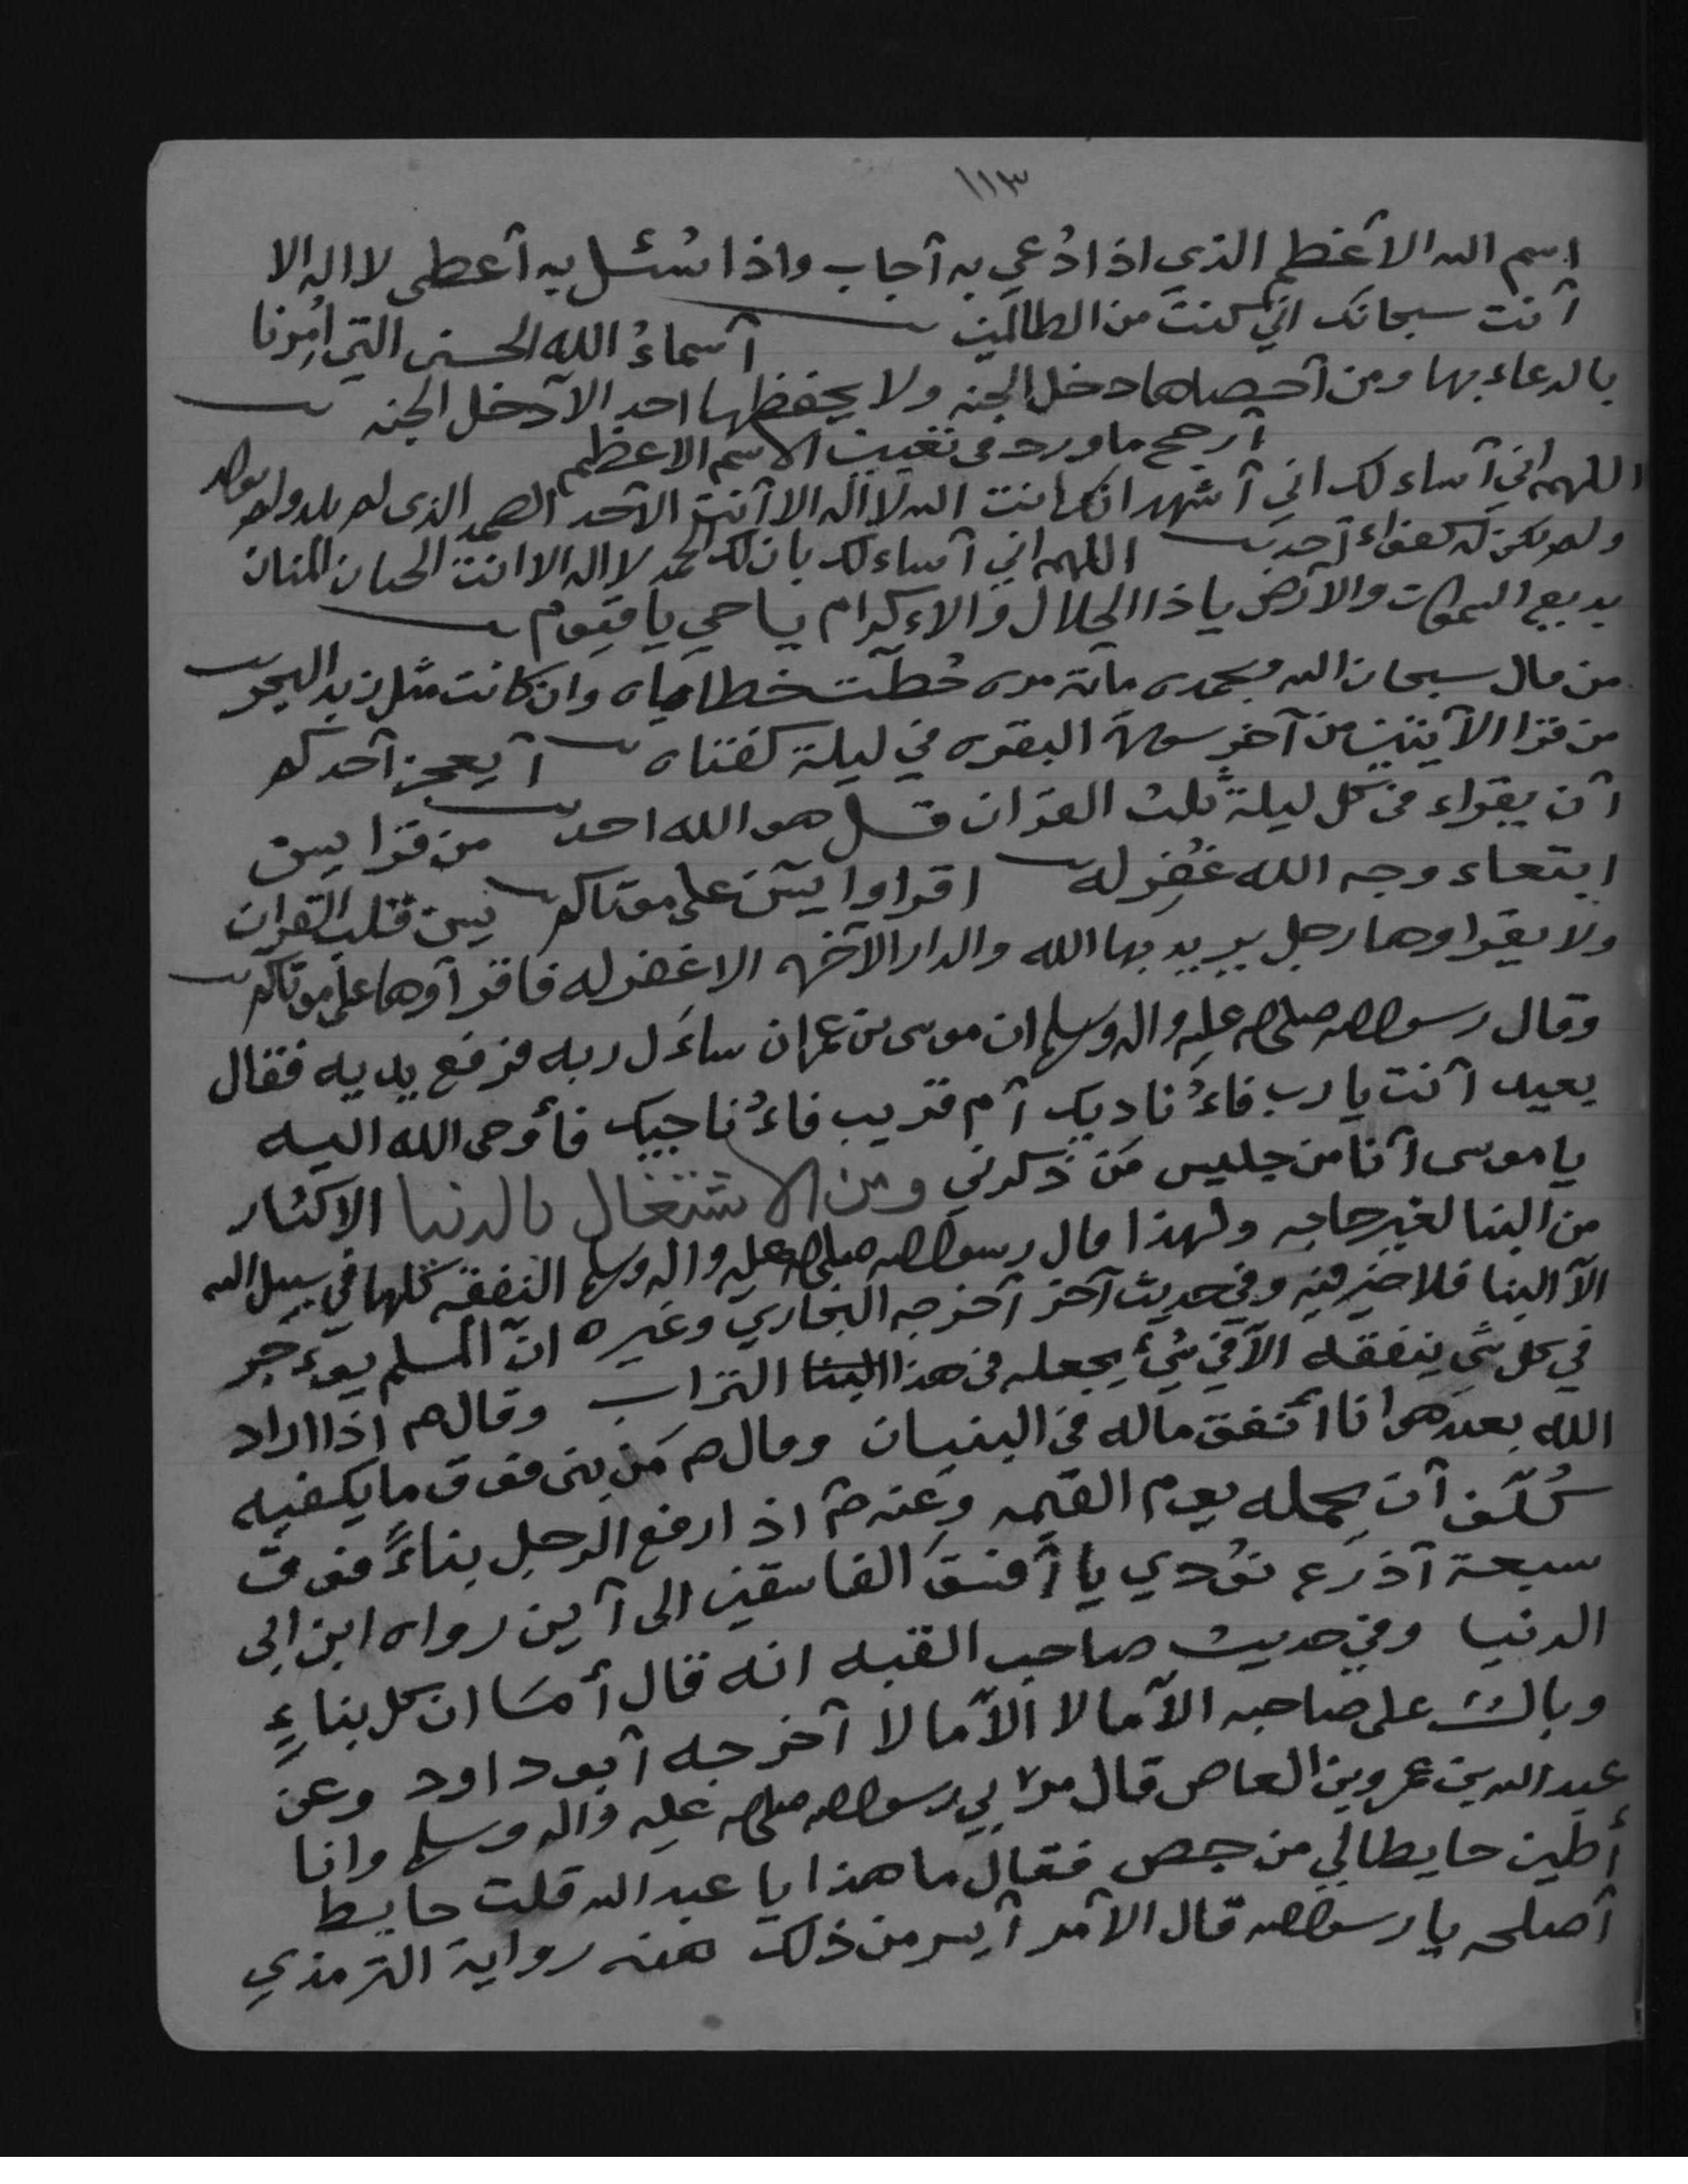 ١١٣
اسم الله الآعظم الذي اذا دُعي به آجاب واذا سُئل به آعطى لا اله الا
آنت سبحانك اني كنت من الظالمين آسماءُ الله الحسنى التي اُمِرنا
بالدعاء بها ومن آحصاها دخل الجنه ولا يحفظها احد الا آدخل الجنه
آرجح ما ورد في تعيين الاسم الاعظم
اللهم اني آساءلك اني آشهد انك انت الله لا اله الا آنت الآحد الصمد الذي لم يلد ولم يولد
ولم يكن له كفواء آحد اللهم اني آساءلك بان لك الحمد لا اله الا انت الحنان المنان
بديع السموات والآرض يا ذا الجلال والاءكرام يا حي يا قيوم
من قال سبحان الله وبحمده مائة مره حُطّت خطاياه وان كانت مثل زبد البحر
من قرا الآيتين من آخر سورة البقره في ليلة كفتاه آيعجز آحدكم
آن يقراء في كل ليلة ثلث القران قل هو الله احد من قرا يس
ابتعاء وجه الله غُفِر له اقراوا يس على موتاكم يس قلب القران
ولا يقراوها رجل يريد بها الله والدار الآخره الا غفر له فاقرآوها على موتاكم
وقال رسول الله صلى الله عليه واله وسلم ان موسى بن عمران ساءَل ربه فرفع يديه فقال
بعيد آنت يا رب فاءُناديك آم قريب فاءُناجيك فأوحى الله اليه
يا موسى آنا من جليس مَن ذكرني ومن الاشتغال بالدنيا الاكثار
من البنا لغير حاجه ولهذا قال رسول الله صلى الله عليه واله وسلم النفقه كلها في سبيل الله
الآ البنا فلا خير فيه وفي حديث آخر آخرجه البخاري وغيره انّ المسلم يوءجر
في كل شي ينفقه الآ في شيء يجعله في هذا البنا التراب وقال م اذا اراد
الله بعبد هوانا أنفق ماله في البنيان وقال م مَن بنى فوق ما يكفيه
كُلّف آن يحمله يوم القيمه وعنه م اذا رفع الرجل بناءً فوق
سبعة آذرع نُودي يا آفسقَ الفاسقين الى آين رواه ابن ابي
الدنيا وفي حديث صاحب القبه انه قال أمَا ان كل بناءٍ
وبال على صاحبه الآ مالا الآ مالا آخرجه آبو داود وعن
عبد الله بن عمرو بن العاص قال مرّ بي رسول الله صلى الله عليه واله وسلم وانا
أطين حايطا لي من جص فقال ما هذا يا عبد الله قلت حايط
آصلحه يا رسول الله قال الآمر آيسر من ذلك هذه رواية الترمذي